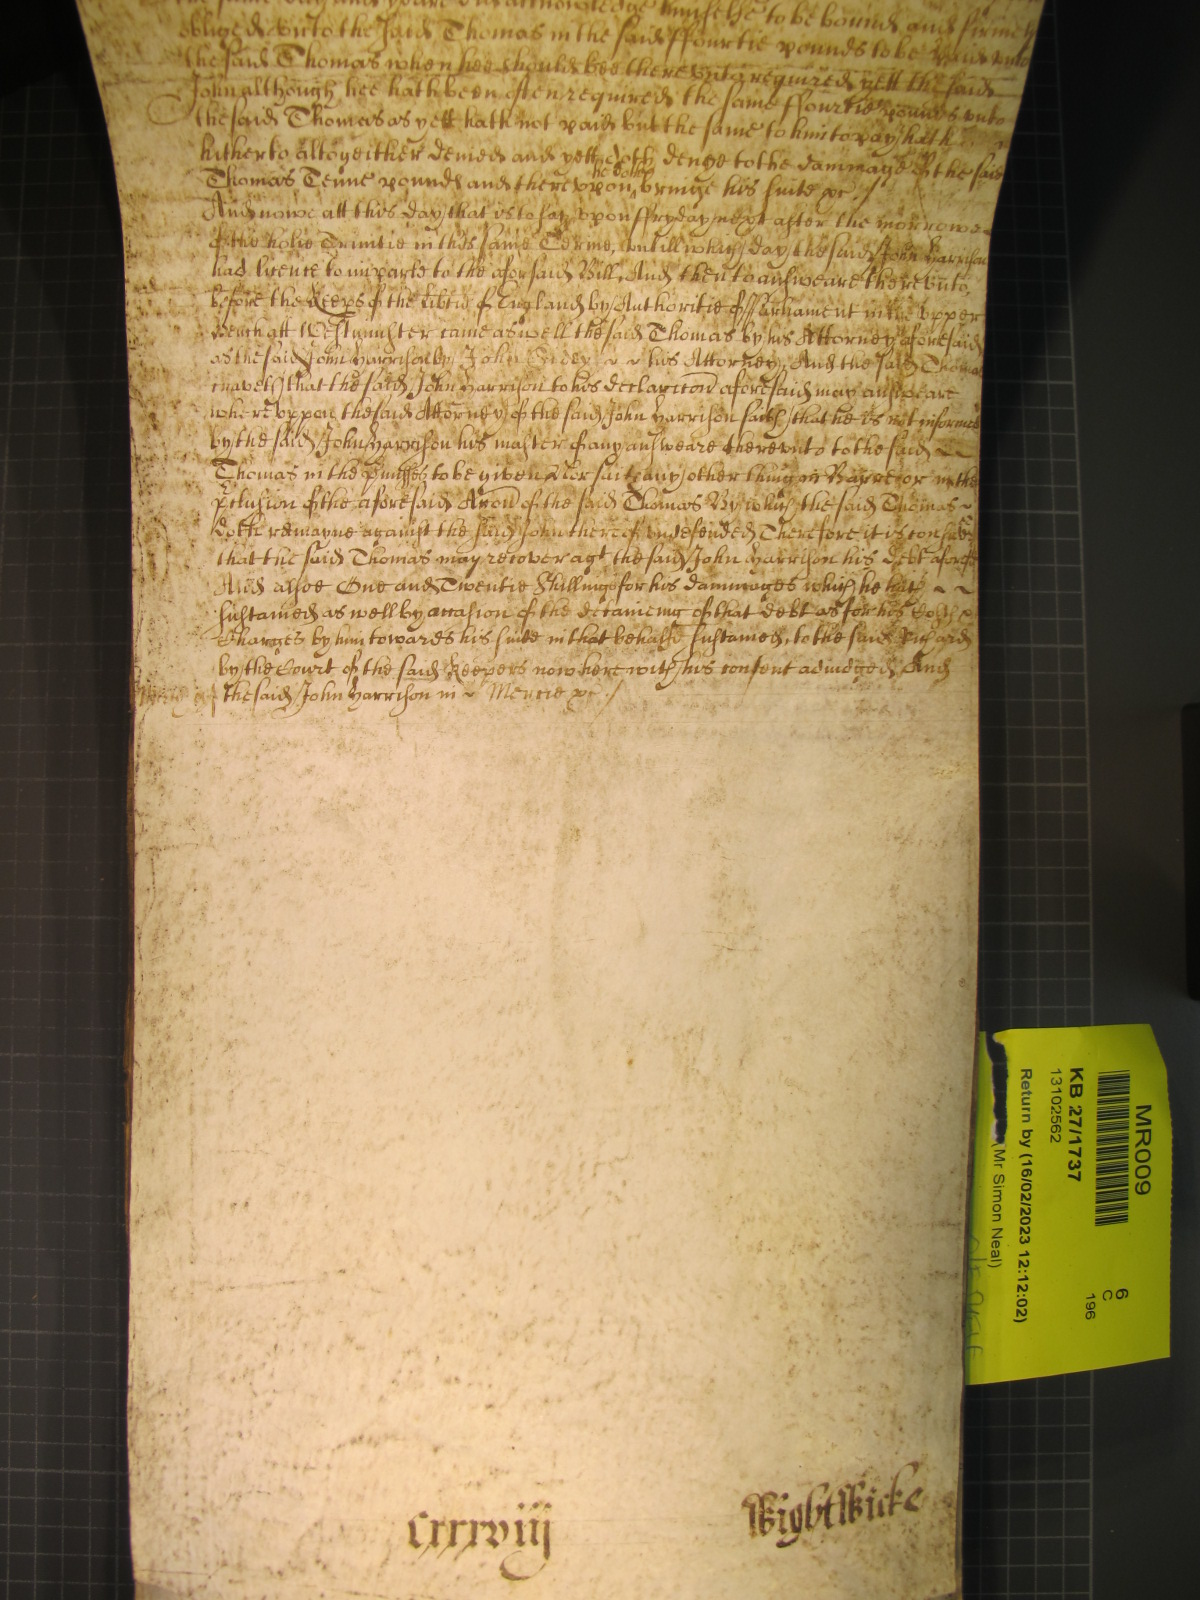 the same day and yeare did acknowledge himselfe to be bound and firmely
obliged unto the said Thomas in the said ffourtie pounds to be paid unto
the said Thomas when hee should bee thereunto required yett the said
John although hee hath been often required the same ffourtie pounds unto
the said Thomas as yett hath not paid but the same to him to pay hath
hitherto altogeither denied and yett doth denye to the dammage of the said
Thomas Tenne pounds and thereuppon he doth bringe his suite &c ./
And nowe att this day that is to say uppon ffryday next after the morrowe
of the holie Trinitie in this same Terme, untill which day the said John Harrison
had licence to imparle to the aforsaid Bill, And then to answeare thereunto,
before the Keeps of the libtie of England by Authoritie of Parliament in the upper
Bench att Westminster came aswell the said Thomas by his Attorney aforesaid
as the said John Harrison by John ~ ~ his Attorney, And the said Thomas
that the said John Harrison to his declaracon aforesaid may answeare
whereuppon the said Attorney of the said John Harrison saith that he is not informed
by the said John Harrison his master of any answeare thereunto to the said ~ ~
Thomas in the to be given Nor saith any other thing in Barre or in the
of the aforesaid Accon of the said Thomas By which the said Thomas ~
doth remayne against the said John thereof undefended Therefore it is
that the said Thomas may recover agt the said John Harrison his debt
And alsoe One and Twentie Shillings for his dammages which he hath ~ ~
sustained as well by occasion of the detaineing of that debt as for his Costs &
Charges by him towards his suite in that behalfe sustained, to the said Richard
by the Court of the said Keepers now here with his consent adiudged And
the said John Harrison in ~ Mercie &c ./
Cxxxviij
WightWicke
MR009
KB 27/1737
13102562
Return by (16/02/2023 12:12:02)
(Mr Simon Neal)
6
C
196